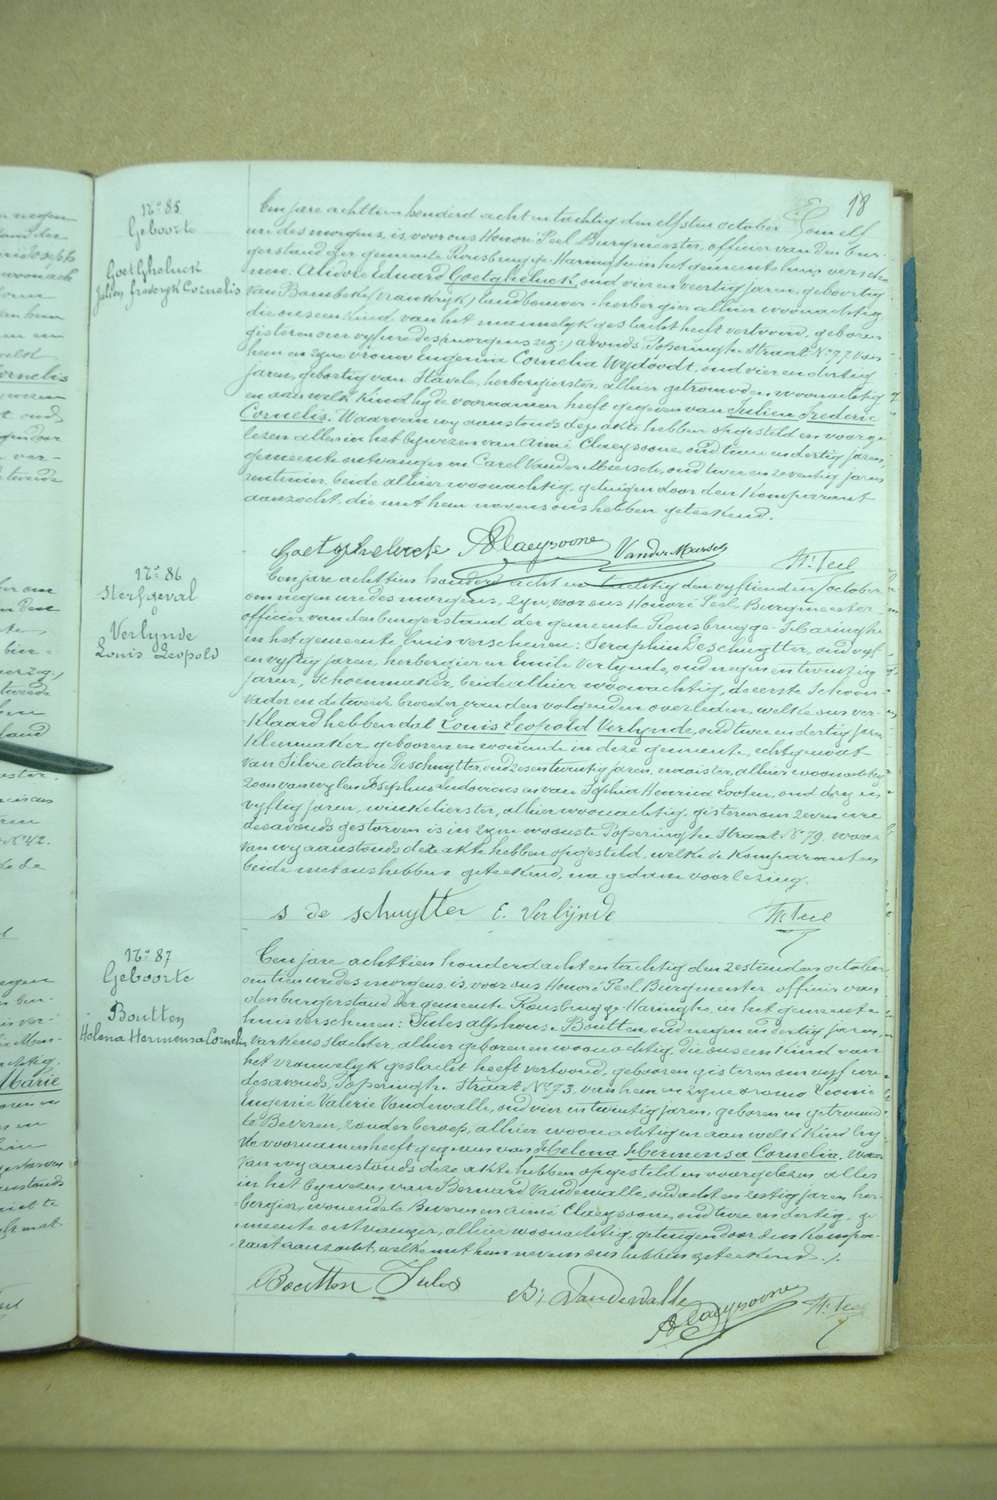 18
N° 85
Geboorte
Goetgheluck
Julien frederyk Cornelis
Ten jare achttien honderd acht en tachtig den elfsten october, om elf
uren des morgens, is, voor ons Honoré Peel Burgmeester, officier van den bur-
gerstand der gemeente Rousbrugge-Haringhe in het gemeentehuis versche-
nen: Eduard Goetgheluck, oud vier en veertig jaren, geboortig
van Bambeke (Frankrijk) landbouwer-herbergier alhier woonachtig
die ons een kind, van het mannelyk geslacht heeft vertoond, geboren
gisteren om vyf ure des avonds, Poperinghe Straat N° 77, van
hem en zyne vrouw Eugenia Cornelia Wydoodt, oud vier en dertig
jaren, geboortig van Stavele, herbergierster, alhier getrouwd en woonachtig
en aan welk kind hy de voornamen heeft gegeven van Julien Frederic
Cornelis. Waarvan wy aanstonds deze akte hebben opgesteld en voorge-
lezen alles in het bywezen van Aimé Claeysoone, oud twee en dertig jaren,
gemeente ontvanger en Carel Vander Meersch, oud twee en zeventig jaren
rentenier, beide alhier woonachtig, getuigen door den Komparant
aanzocht, die met hem nevens ons hebben geteekend.
Goetgheluck AClaeysoone VanderMeersch H. Peel
N° 86
Sterfgeval
Verlynde
Louis Leopold
Ten jare achttien honderd acht en tachtig den vyftienden october
om negen ure des morgens, zyn, voor ons Honoré Peel Burgmeester
officier van den burgerstand der gemeente Rousbrugge-Haringhe
in het gemeente huis verschenen: Seraphin Deschuytter, oud vyf
en vyftig jaren, herbergier en Emile Verlynde, oud negen en twintig
jaren, Schoenmaker, beide alhier woonachtig, de eerste Schoon-
vader en de tweede broeder van den volgenden overleden, welke ons ver-
klaard hebben dat Louis Leopold Verlynde, oud twee en dertig jaren
Kleermaker, geboren en wonende in deze gemeente, echtgenoot
van Silvie Octavie Deschuytter, oud zes en twintig jaren, naaister, alhier woonachtig
Zoon van wylen Josephus Ludovicus en van Sophia Henrica Looten, oud drij en
vyftig jaren, winkelierster, alhier woonachtig, gisteren om zeven ure
des avonds gestorven is in zyne woonste Poperinghe Straat N° 79. Waar-
van wy aanstonds deze akte hebben opgesteld, welke de Komparanten
beide met ons hebben geteekend, na gedane voorlezing.
S de schuytter E. Verlijnde H. Peel
N° 87
Geboorte
Boutten
Helena Hermensa Cornelia
Ten jare achttien honderd acht en tachtig den zestienden october
om tien ure des morgens is, voor ons Honoré Peel Burgmeester officier van
den burgerstand der gemeente Rousbrugge Haringhe, in het gemeente
huis verschenen: Jules alphonse Boutten, oud negen en dertig jaren,
varkensslachter, alhier geboren en woonachtig, die ons een Kind van
het vrouwelyk geslacht heeft vertoond, geboren gisteren om vyf ure
des avonds, Poperinghe Straat N° 73, van hem en zyne vrouw Leonie
Eugenie Valerie Vandewalle, oud vier en twintig jaren, geboren en getrouwd
te Beveren, zonder beroep, alhier woonachtig en aan welk Kind hy
de voornamen heeft gegeven van Helena Hermensa Cornelia. Waar-
van wy aanstonds deze akte hebben opgesteld en voorgelezen alles
in het bywezen van Bernard Vandewalle, oud acht en zestig jaren her-
bergier, wonende te Beveren en Aimé Claeysoone, oud twee en dertig, ge-
meente ontvanger, alhier woonachtig, getuigen door den Kompa-
rant aanzocht, welke met hem nevens ons hebben geteekend.
Boutten Jules B. Vandewalle AClaeysoone H. Peel